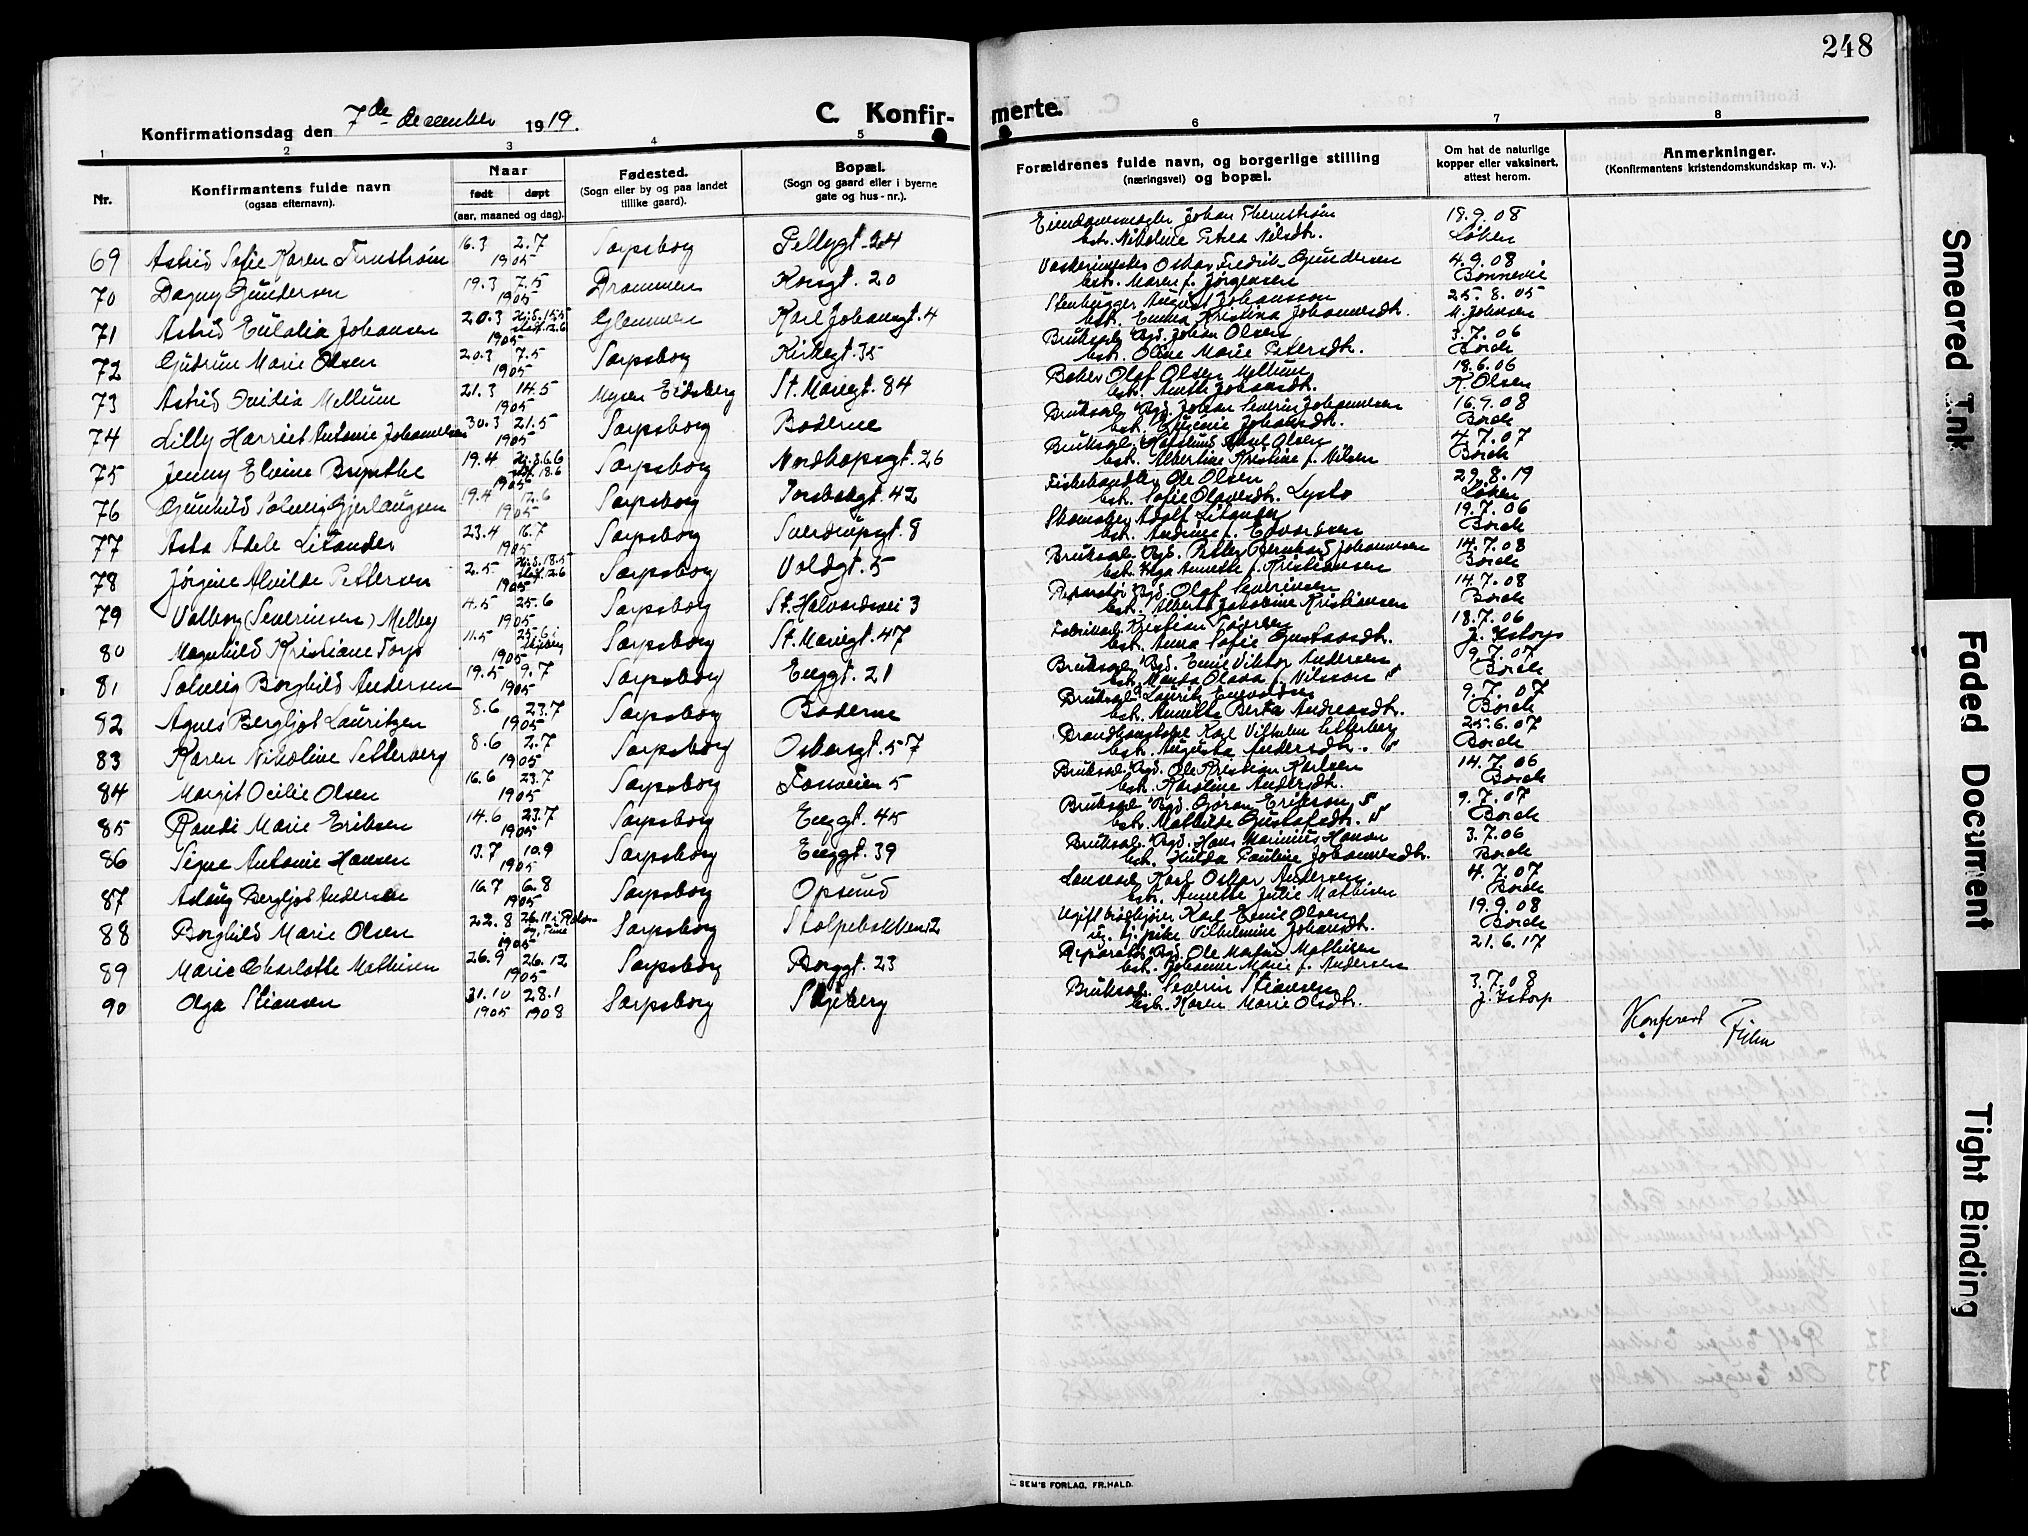 248
Konfirmationsdag den 7de december 1919.
C. Konfirmerte.
1 2 3 4 5 6 7 8
Nr.
Konfirmantens fulde navn
(ogsaa efternavn).
Naar
født døpt
(aar, maaned og dag).
Fødested.
(Sogn eller by og paa landet
tillike gaard).
Bopæl.
(Sogn og gaard eller i byerne
gate og hus-nr.).
Forældrenes fulde navn, og borgerlige stilling
(næringsvei) og bopæl.
Om hat de naturlige
kopper eller vaksinert,
attest herom.
Anmerkninger.
(Konfirmantens kristendomskundskap m. v.).
69 Astrid Sofie Karen Fernstrøm 16.3 2.7 1905 Sarpsborg Pellygt. 24 Johan Thernstrøm 18.9.08
bst. Nikoline Petrea Nilsdt. Løken
70 Dagny Gundersen 19.3 7.5 1905 Drammen Korsgt. 20 Oskar Fredrik Gundersen 4.9.08
bst. Maren f. Jørgensen Bonnevie
71 Astrid Eulalia Johansen 20.3 1905 Glemmen Karl Johansgt. 4 Stenhugger August Johansson 25.8.05
bst. Emma Kristina Johannesdt. M. Johnsen
72 Gudrun Marie Olsen 20.3 7.5 1905 Sarpsborg Kirkegt. 35 Bruksarb. Johan Olsen 3.7.06
bst. Oline Marie Petersdt. Borch
73 Astrid Ovidia Mellum 21.3 14.5 1905 Mysen Eidsberg St. Mariegt. 84 Baker Olof Olsen Mellum 18.6.06
bst. Anette Johansdt. K. Olsen
74 Lilly Harriet Antonie Johannesen 30.3 21.5 1905 Sarpsborg Baderne Bruksarb. Johan Severin Johannesen 16.9.08
bst. Eugenie Johansdt. Borch
75 Jenny Elvine Brynthe 19.4 1905 Sarpsborg Nordkapsgt. 26 Bruksarb. Olsen 4.7.07
bst. Albertine Kristine f. Nilsen Borch
76 Gunhild Solveig Gjerlaugsen 19.4 12.6 1905 Sarpsborg Torsbekgt. 42 Fiskehandler Ole Olsen 29.8.19
bst. Sofie Olavesdt. Lysto Løken
77 Asta Adele Litander 23.4 16.7 1905 Sarpsborg Sverdrupsgt. 8 Skomaker Adolf Litander 19.7.06
bst. Andrine f. Edvardsen Borch
78 Jørgine Alvilde Pettersen 2.5 1905 Sarpsborg Voldgt. 5 Bruksarb. Petter Bernhard Johannesen 14.7.08
bst. Inga Annette f. Kristiansen Borch
79 Valborg (Severinsen) Melby 4.5 25.6 1905 Sarpsborg St. Halvardsvei 3 Reparatør Olof Severinsen 14.7.08
bst. Alberte Jakobine Kristiansen Borch
80 Magnhild Kristiane Torp 11.5 25.6 1905 Sarpsborg St. Mariegt. 47 Fabrikarb. Kristian 18.7.06
bst. Anna Sofie Gustavsdt. J. Ystorp
81 Solveig Borghild Andersen 19.5 9.7 1905 Sarpsborg Enggt. 21 Bruksarb. Emil Viktor Andersen 9.7.07
bst. Olava f. Nilsson Borch
82 Agnes Bergljot Lauritzen 8.6 23.7 1905 Sarpsborg Baderne Bruksarb. Laurits Enevoldsen 9.7.07
bst. Annette Berta Andreasdt. Borch
83 Karen Nikoline Setterberg 8.6 2.7 1905 Sarpsborg Oskarsgt. 57 Brandkonstabel Karl Vilhelm Setterberg 25.6.07
bst. Augusta Andersdt. Borch
84 Margit Ovilie Olsen 16.6 23.7 1905 Sarpsborg Fosveien 5 Bruksarb. Ole Kristian Karlsen 14.7.06
bst. Karoline Andersdt. Borch
85 Randi Marie Eriksen 14.6 23.7 1905 Sarpsborg Enggt. 45 Bruksarb. Gøran Erikson 9.7.07
bst. Mathilde Gustafsdt. Borch
86 Signe Antonie Hansen 13.7 10.9 1905 Sarpsborg Enggt. 39 Bruksarb. Hans Marinius Hansen 3.7.06
bst. Hulda Pauline Johannesdt. Borch
87 Aslaug Bergljot Andersen 16.7 6.8 1905 Sarpsborg Opsund Karl Oskar Andersen 4.7.07
bst. Annette Julie Mathisen Borch
88 Borghild Marie Olsen 22.8 1905 Sarpsborg Stolpebakken 2 Ugift Karl Emil Olsen 19.9.08
ug. tj. pike Vilhelmine Johansdt. Borch
89 Marie Charlotte Mathisen 26.9 26.12 1905 Sarpsborg Borggt. 23 Reparatør Ole Martin Mathisen 21.6.17
bst. Johanne Marie f. Andersen
90 Olga Stiansen 31.10 28.1 1905 1908 Sarpsborg Skjeberg Bruksarb. Severin Stiansen 3.7.08
bst. Karen Marie Olsdt. J. Ystorp
Konferert
SEM'S FORLAG, FR.HALD.
Smeared Ink
Faded Document
Tight Binding